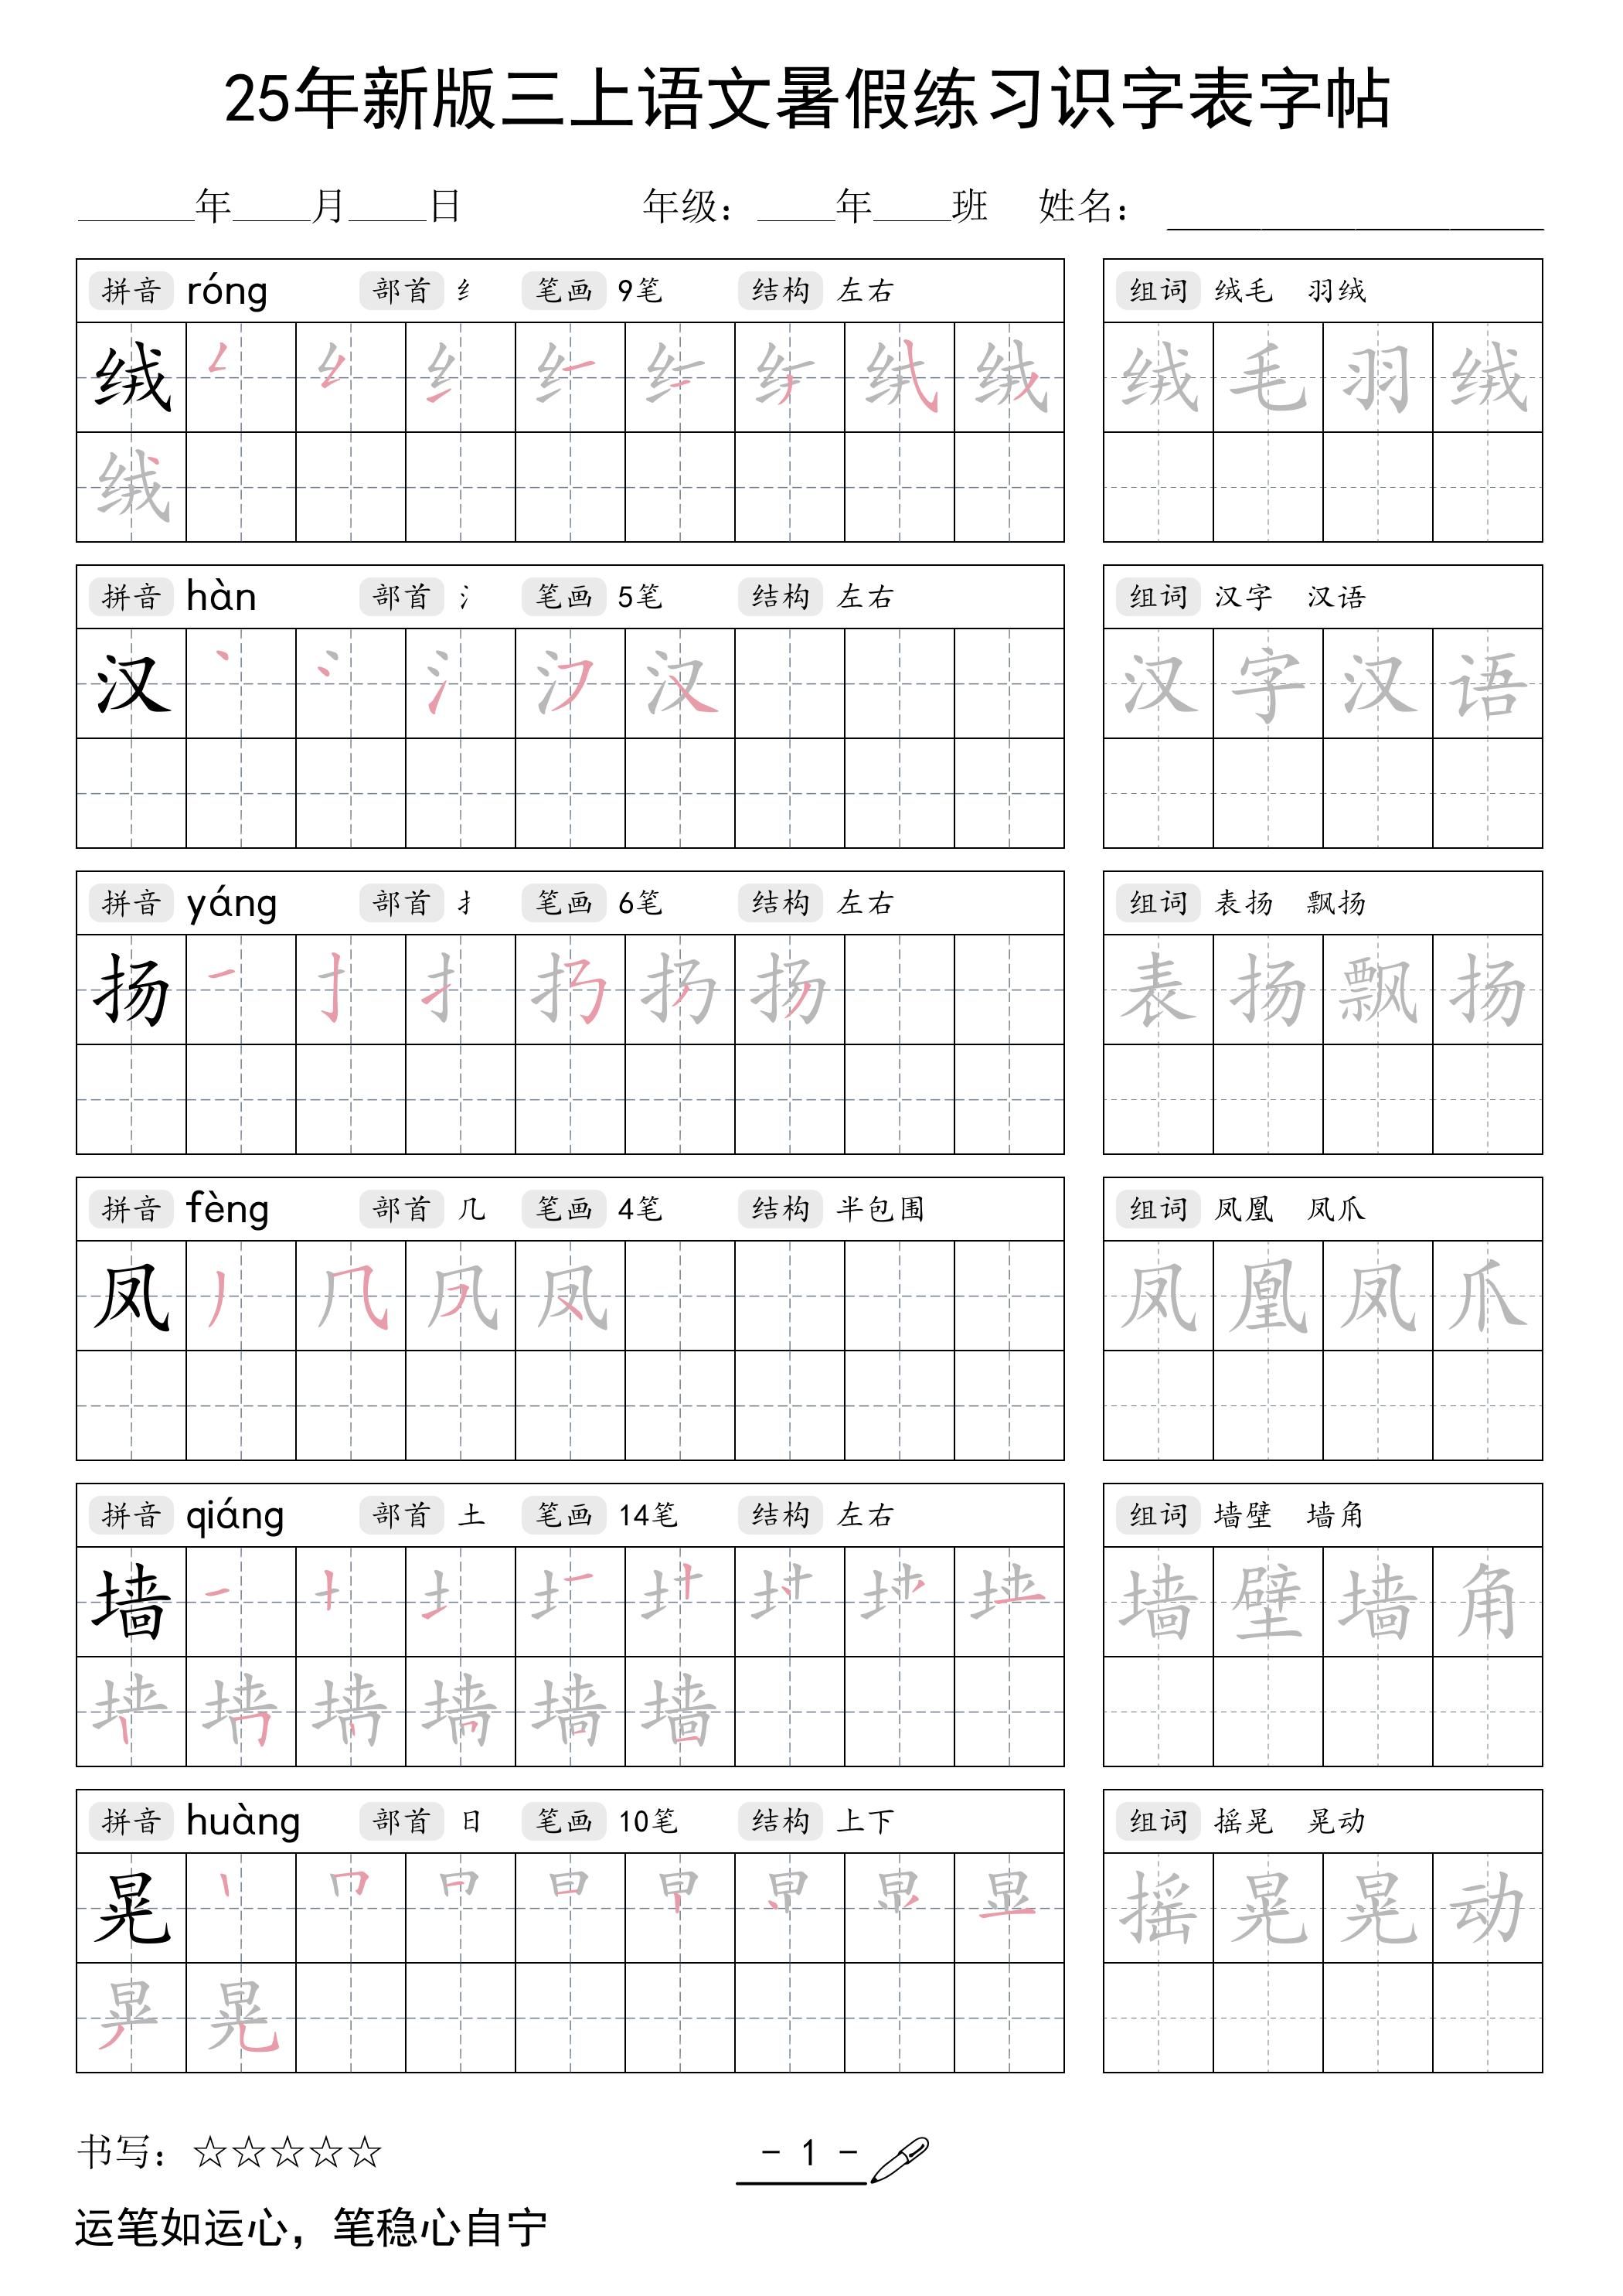 25年新版三上语文暑假练习识字表字帖
____年____月____日 年级：____年____班 姓名：____
拼音 róng 部首 纟 笔画 9笔 结构 左右 组词 绒毛 羽绒
绒 绒 毛 羽 绒
绒
拼音 hàn 部首 氵 笔画 5笔 结构 左右 组词 汉字 汉语
汉 汉 字 汉 语
拼音 yáng 部首 扌 笔画 6笔 结构 左右 组词 表扬 飘扬
扬 扬 表 扬 飘 扬
拼音 fèng 部首 几 笔画 4笔 结构 半包围 组词 凤凰 凤爪
凤 凤 凤 凰 凤 爪
拼音 qiáng 部首 土 笔画 14笔 结构 左右 组词 墙壁 墙角
墙 墙 壁 墙 角
墙
拼音 huàng 部首 日 笔画 10笔 结构 上下 组词 摇晃 晃动
晃 摇 晃 晃 动
晃
书写：☆☆☆☆☆
- 1 -
运笔如运心，笔稳心自宁